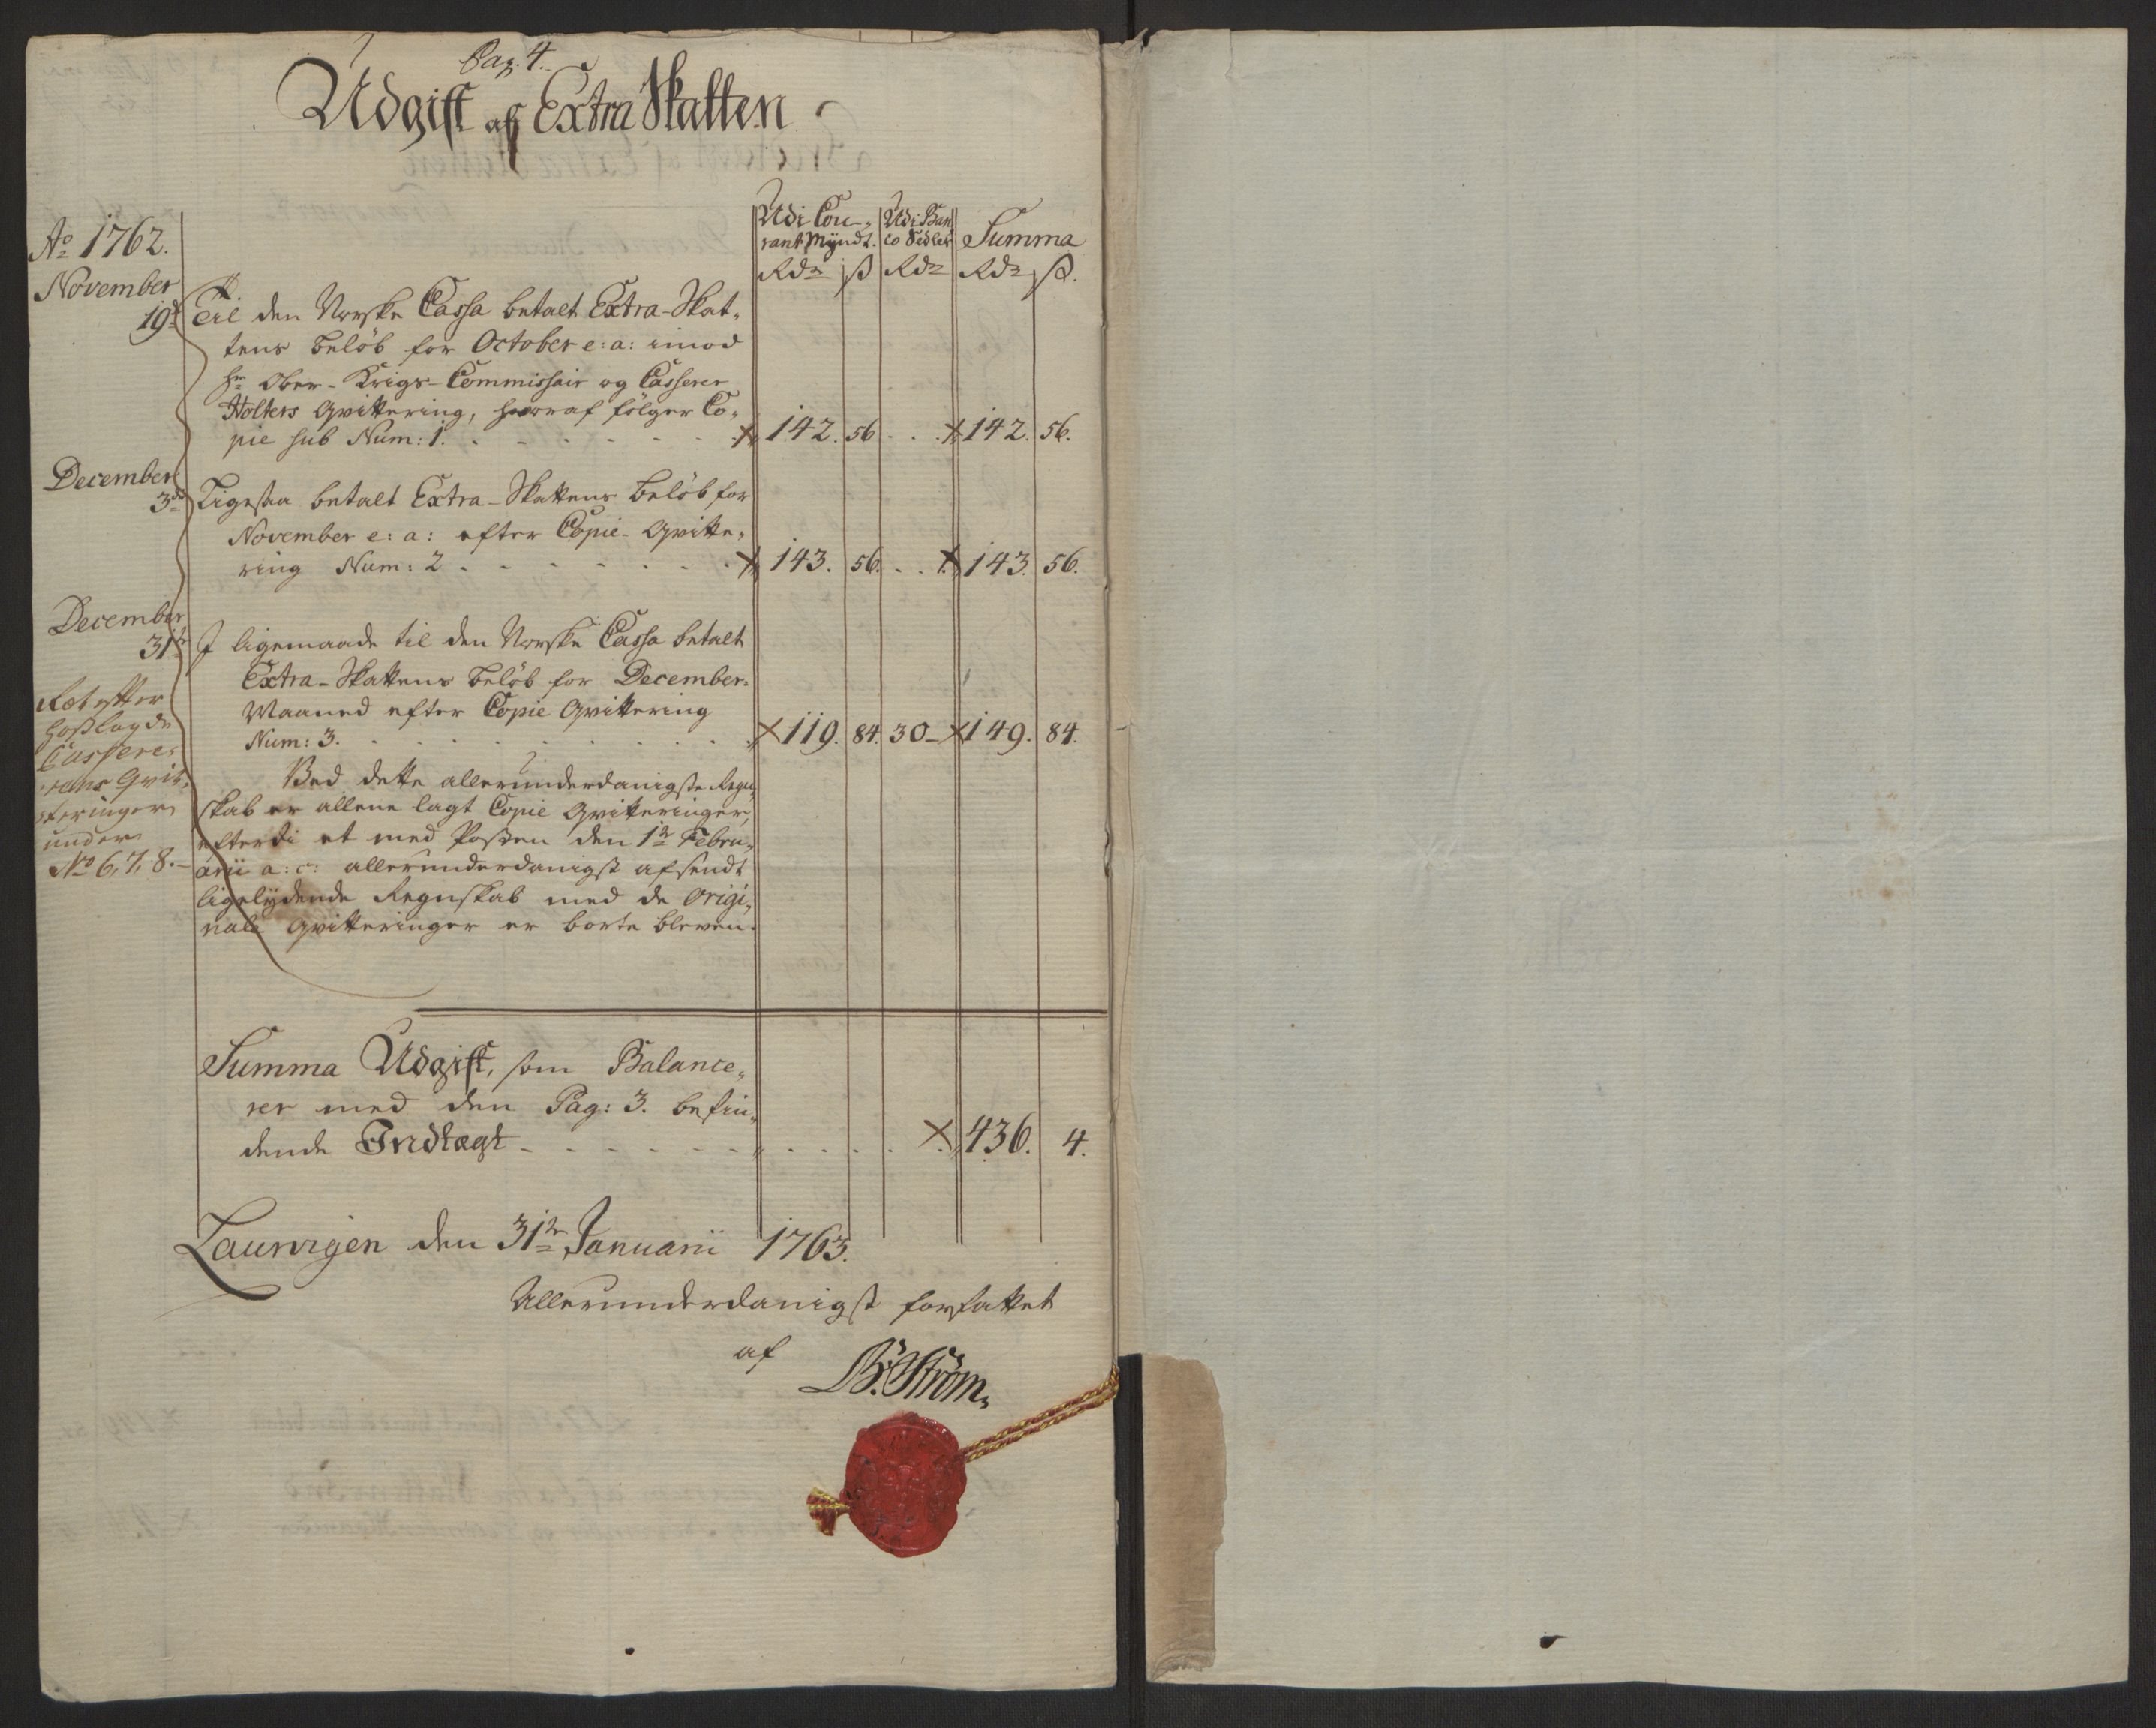 Pag. 4.
Udgift af Extra Skatten
Udi Cou-
rant Myndt.
Udi Ban
co Sedler
Summa
Rdr ß Rdr Rdr ß.
Ao 1762.
November
19de Til den Norske Cassa betalt Extra-Skat-
tens beløb for October e: a: imod
Hr Ober-Krigs-Commissair og Casserer
Holters Qvittering, hvoraf følger Co-
pie sub Num: 1. 142. 56 142. 56.
December
3de Ligesaa betalt Extra-Skattens beløb for
November e: a: efter Copie-Qvitte-
ring Num: 2 143. 56. 143. 56.
December
31te I ligemaade til den Norske Cassa betalt
Extra-Skattens beløb for December-
Maaned efter Copie Qvittering
Num: 3. 119. 84. 30 149. 84.
Ræt efter
hoslagde
Casserer
rens Qvit-
teringer
under
No 6, 7, 8.
Ved dette allerunderdanigste Regn-
skab er allene lagt Copie Qvitteringer,
efterdi et med Posten den 1te Febru-
arii a: c: allerunderdanigst afsendt
ligelydende Regnskab med de Origi-
nale Qvitteringer er borte bleven.
Summa Udgift, som Balance-
rer med den Pag: 3. befin-
dende Indtægt 436. 4.
Laurvigen den 31te Januarii 1763.
Allerunderdanigst forfattet
af
B. Strøm.